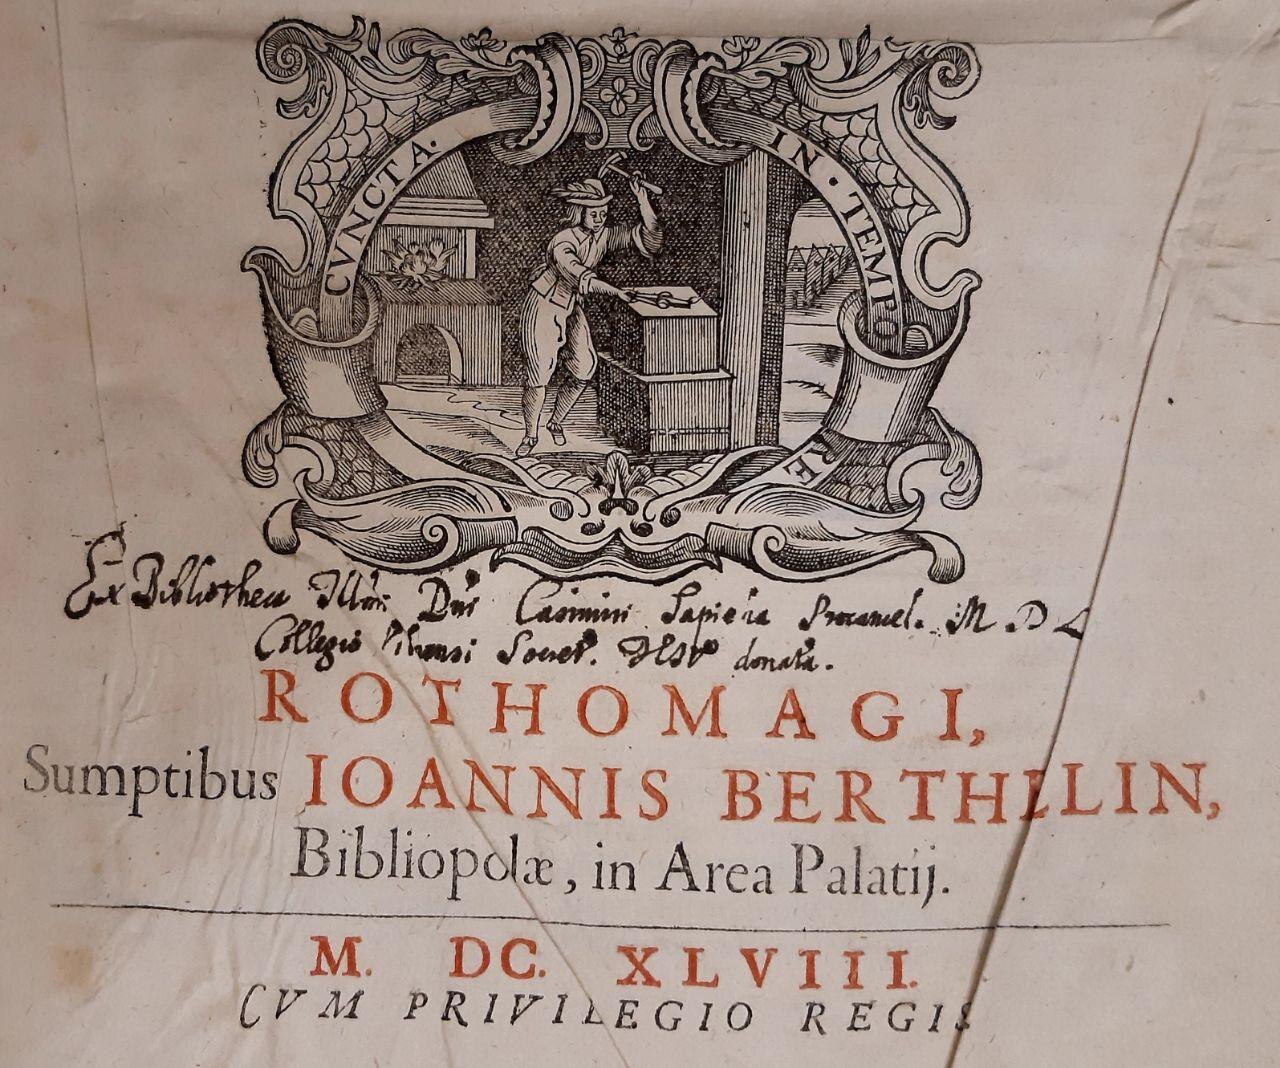 CVNCTA. IN · TEMPO
RE
Ex Bibliotheca Illmi Dni Casimiri Sapieha Procancel. M D L
Collegio Vilnensi Societ. IESV donata.
ROTHOMAGI,
Sumptibus IOANNIS BERTHELIN,
Bibliopolæ, in Area Palatij.
M. DC. XLVIII.
CVM PRIVILEGIO REGIS